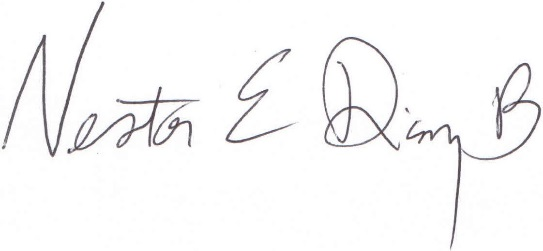 Nestor E Diaz B